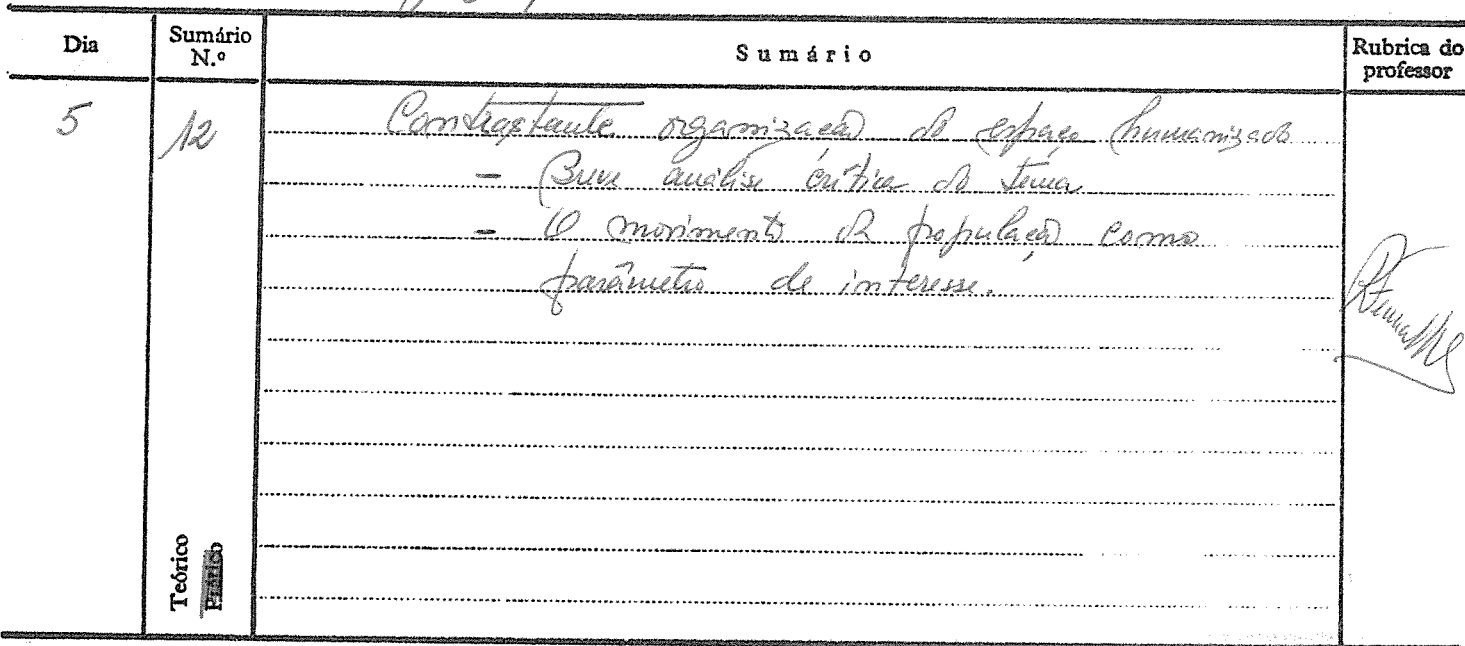 Dia
Sumário N.º
Sumário
Rubrica do professor
5
12
Contrastante organização do espaço humanizado
- Breve análise crítica do tema
- O movimento da população como
parâmetro de interesse.
Teórico
Prático